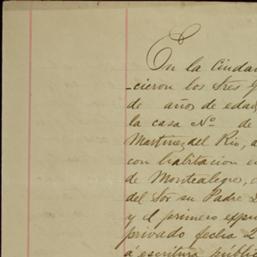 En la Ciudad
cieron los tres y
de años de edad
la casa Nº de
Martinez del Rio, a
con habitacion en
de Montealegre, 
del Sor su Padre D
y el primero expu
privado fecha 2
á escritura públic